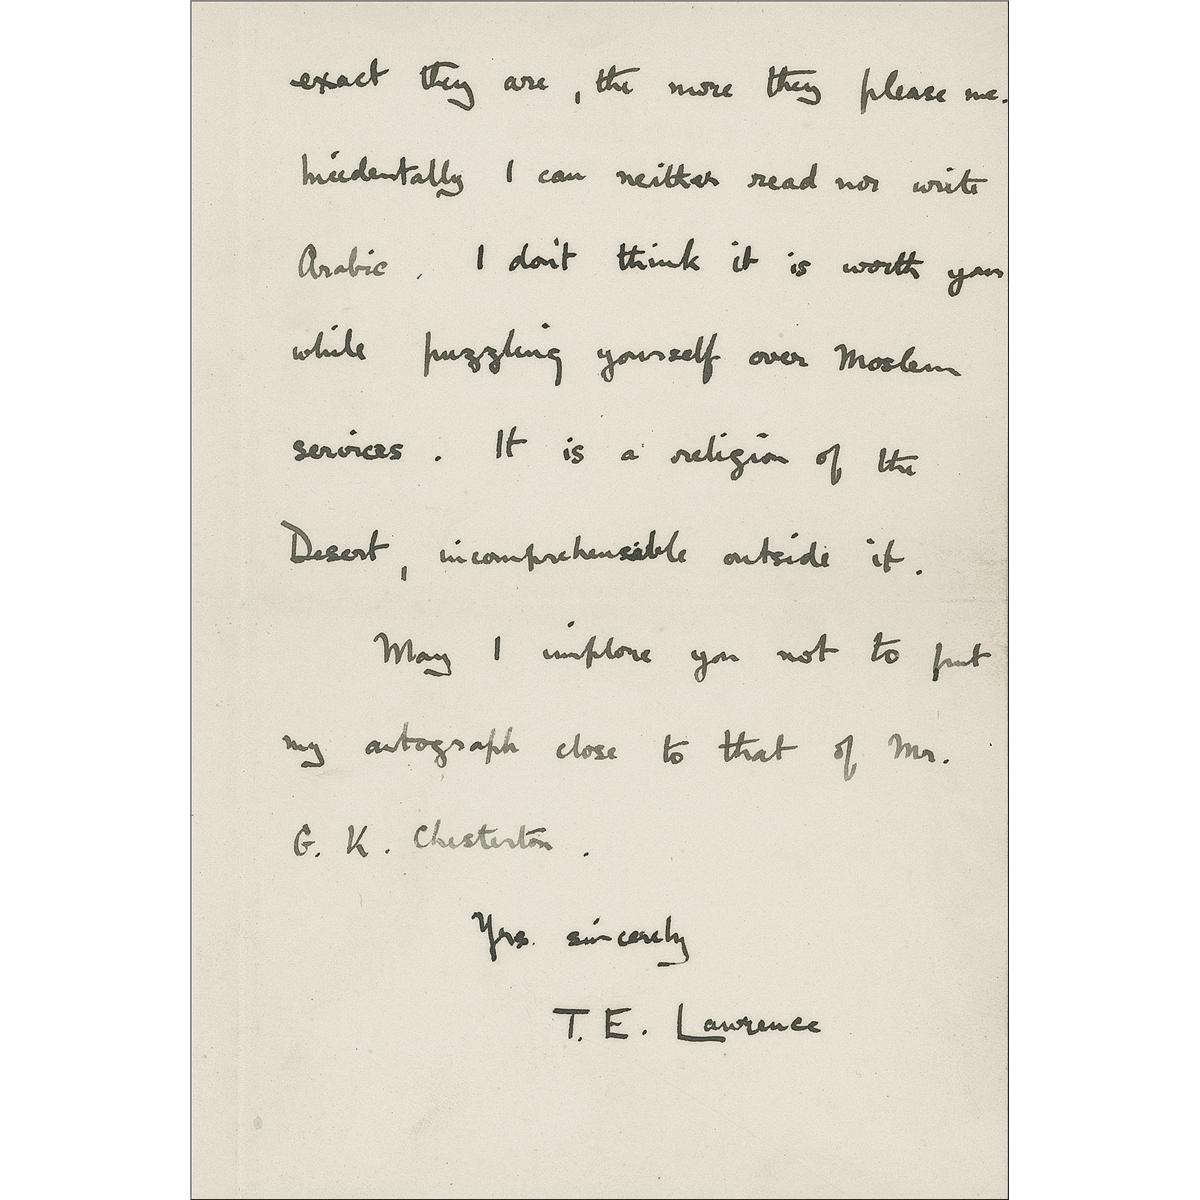 exact they are, the more they please me.
Incidentally I can neither read nor write
Arabic. I don't think it is worth your
while puzzling yourself over Moslem
services. It is a religion of the
Desert, incomprehensible outside it.
May I implore you not to put
my autograph close to that of Mr.
G. K. Chesterton.
Yrs. sincerely
T. E. Lawrence